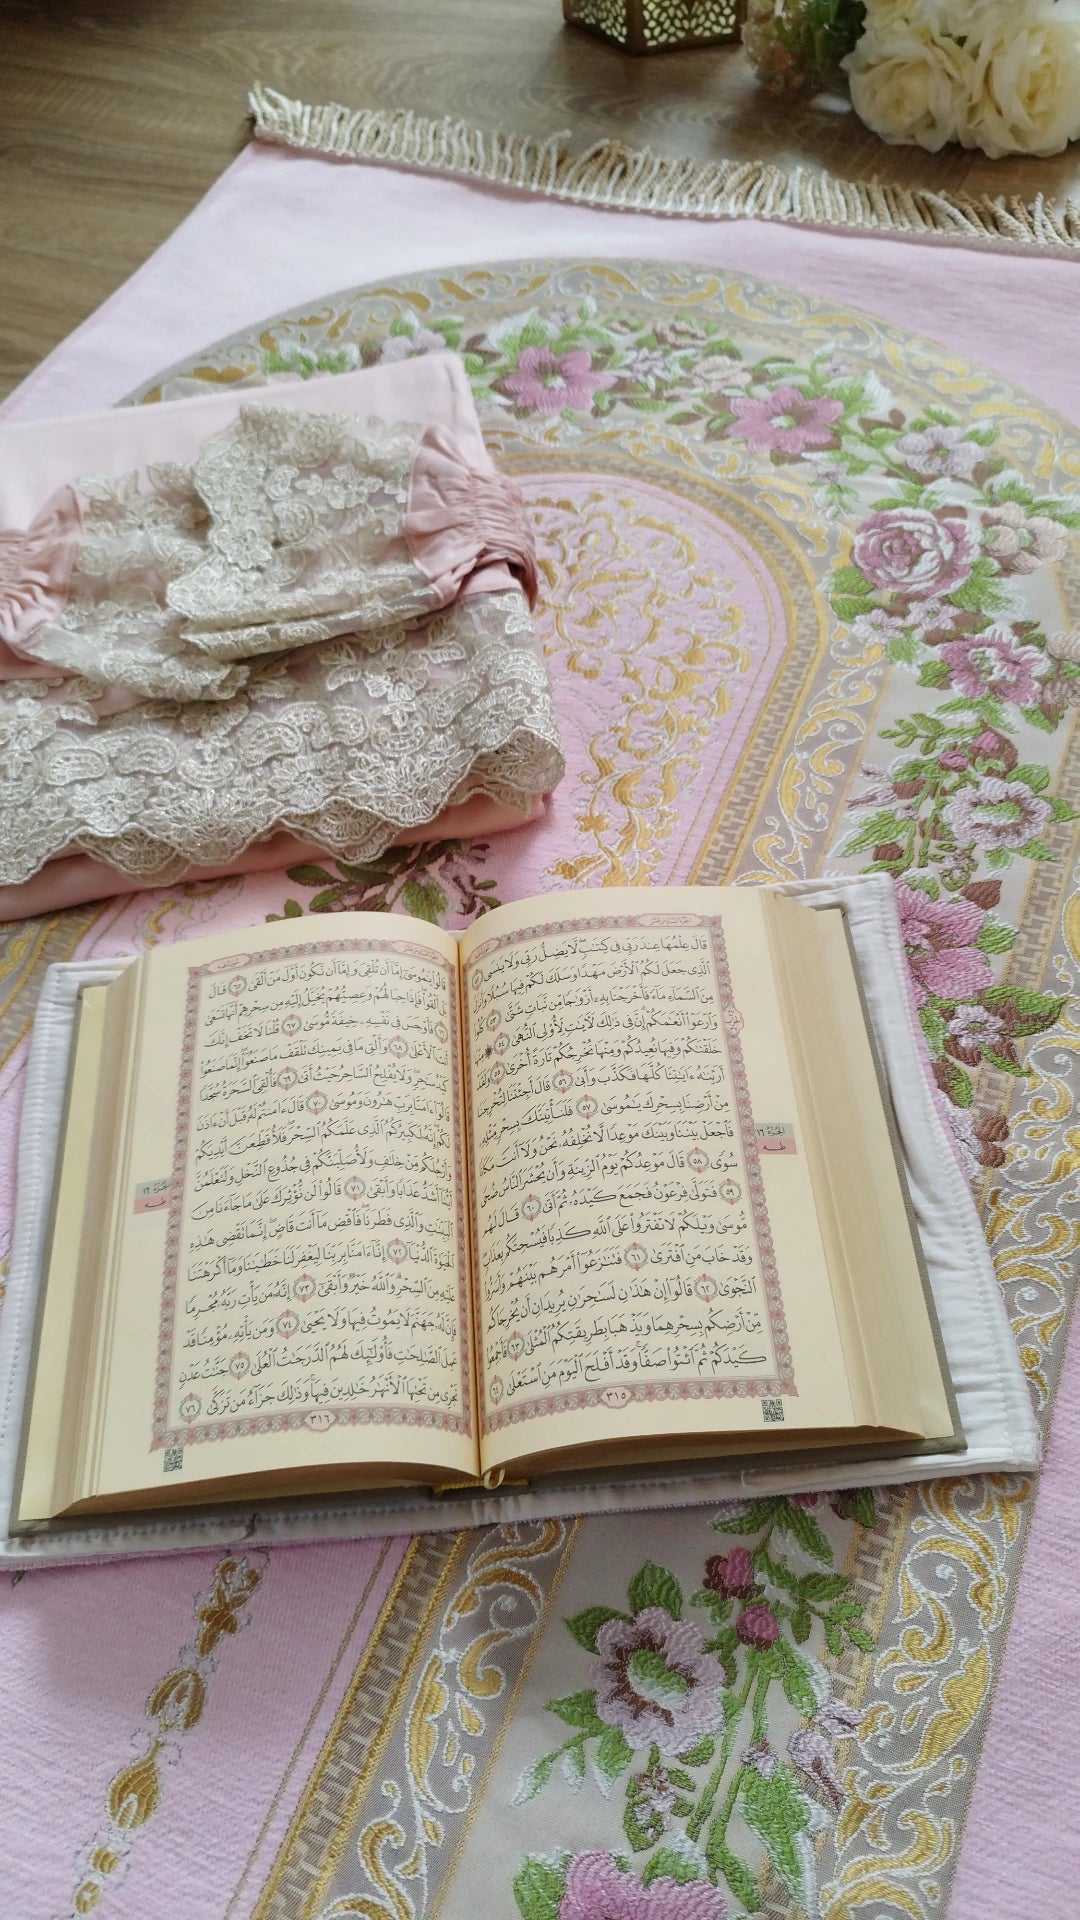 الجزء السادس عشر
سورة طه
قَالَ عِلْمُهَا عِندَ رَبِّي فِي كِتَٰبٍ لَّا يَضِلُّ رَبِّي وَلَا يَنسَى ٥٢
ٱلَّذِي جَعَلَ لَكُمُ ٱلْأَرْضَ مَهْدًا وَسَلَكَ لَكُمْ فِيهَا سُبُلًا وَأَنزَلَ
مِنَ ٱلسَّمَآءِ مَآءً فَأَخْرَجْنَا بِهِۦٓ أَزْوَٰجًا مِّن نَّبَاتٍ شَتَّىٰ ٥٣ كُلُوا۟
وَٱرْعَوْا۟ أَنْعَٰمَكُمْ إِنَّ فِي ذَٰلِكَ لَءَايَٰتٍ لِّأُو۟لِي ٱلنُّهَىٰ ٥٤ ۞ مِنْهَا
خَلَقْنَٰكُمْ وَفِيهَا نُعِيدُكُمْ وَمِنْهَا نُخْرِجُكُمْ تَارَةً أُخْرَىٰ ٥٥ وَلَقَدْ
أَرَيْنَٰهُ ءَايَٰتِنَا كُلَّهَا فَكَذَّبَ وَأَبَىٰ ٥٦ قَالَ أَجِئْتَنَا لِتُخْرِجَنَا
مِنْ أَرْضِنَا بِسِحْرِكَ يَٰمُوسَىٰ ٥٧ فَلَنَأْتِيَنَّكَ بِسِحْرٍ مِّثْلِهِۦ
فَٱجْعَلْ بَيْنَنَا وَبَيْنَكَ مَوْعِدًا لَّا نُخْلِفُهُۥ نَحْنُ وَلَآ أَنتَ مَكَانًا
سُوًى ٥٨ قَالَ مَوْعِدُكُمْ يَوْمُ ٱلزِّينَةِ وَأَن يُحْشَرَ ٱلنَّاسُ ضُحًى
٥٩ فَتَوَلَّىٰ فِرْعَوْنُ فَجَمَعَ كَيْدَهُۥ ثُمَّ أَتَىٰ ٦٠ قَالَ لَهُم
مُّوسَىٰ وَيْلَكُمْ لَا تَفْتَرُوا۟ عَلَى ٱللَّهِ كَذِبًا فَيُسْحِتَكُم بِعَذَابٍ
وَقَدْ خَابَ مَنِ ٱفْتَرَىٰ ٦١ فَتَنَٰزَعُوٓا۟ أَمْرَهُم بَيْنَهُمْ وَأَسَرُّوا۟
ٱلنَّجْوَىٰ ٦٢ قَالُوٓا۟ إِنْ هَٰذَٰنِ لَسَٰحِرَٰنِ يُرِيدَانِ أَن يُخْرِجَاكُم
مِّنْ أَرْضِكُم بِسِحْرِهِمَا وَيَذْهَبَا بِطَرِيقَتِكُمُ ٱلْمُثْلَىٰ ٦٣ فَأَجْمِعُوا۟
كَيْدَكُمْ ثُمَّ ٱئْتُوا۟ صَفًّا وَقَدْ أَفْلَحَ ٱلْيَوْمَ مَنِ ٱسْتَعْلَىٰ ٦٤
٣١٥
الجزء ١٦
طه
الجزء السادس عشر
سورة طه
قَالُوا۟ يَٰمُوسَىٰٓ إِمَّآ أَن تُلْقِيَ وَإِمَّآ أَن نَّكُونَ أَوَّلَ مَنْ أَلْقَىٰ ٦٥ قَالَ
بَلْ أَلْقُوا۟ فَإِذَا حِبَالُهُمْ وَعِصِيُّهُمْ يُخَيَّلُ إِلَيْهِ مِن سِحْرِهِمْ أَنَّهَا تَسْعَىٰ
٦٦ فَأَوْجَسَ فِي نَفْسِهِۦ خِيفَةً مُّوسَىٰ ٦٧ قُلْنَا لَا تَخَفْ إِنَّكَ
أَنتَ ٱلْأَعْلَىٰ ٦٨ وَأَلْقِ مَا فِي يَمِينِكَ تَلْقَفْ مَا صَنَعُوٓا۟ إِنَّمَا صَنَعُوا۟
كَيْدُ سَٰحِرٍ وَلَا يُفْلِحُ ٱلسَّاحِرُ حَيْثُ أَتَىٰ ٦٩ فَأُلْقِيَ ٱلسَّحَرَةُ سُجَّدًا
قَالُوٓا۟ ءَامَنَّا بِرَبِّ هَٰرُونَ وَمُوسَىٰ ٧٠ قَالَ ءَامَنتُمْ لَهُۥ قَبْلَ أَنْ ءَاذَنَ
لَكُمْ إِنَّهُۥ لَكَبِيرُكُمُ ٱلَّذِي عَلَّمَكُمُ ٱلسِّحْرَ فَلَأُقَطِّعَنَّ أَيْدِيَكُمْ
وَأَرْجُلَكُم مِّنْ خِلَٰفٍ وَلَأُصَلِّبَنَّكُمْ فِي جُذُوعِ ٱلنَّخْلِ وَلَتَعْلَمُنَّ
أَيُّنَآ أَشَدُّ عَذَابًا وَأَبْقَىٰ ٧١ قَالُوا۟ لَن نُّؤْثِرَكَ عَلَىٰ مَا جَآءَنَا مِنَ
ٱلْبَيِّنَٰتِ وَٱلَّذِي فَطَرَنَا فَٱقْضِ مَآ أَنتَ قَاضٍ إِنَّمَا تَقْضِي هَٰذِهِ
ٱلْحَيَوٰةَ ٱلدُّنْيَآ ٧٢ إِنَّآ ءَامَنَّا بِرَبِّنَا لِيَغْفِرَ لَنَا خَطَٰيَٰنَا وَمَآ أَكْرَهْتَنَا
عَلَيْهِ مِنَ ٱلسِّحْرِ وَٱللَّهُ خَيْرٌ وَأَبْقَىٰٓ ٧٣ إِنَّهُۥ مَن يَأْتِ رَبَّهُۥ مُجْرِمًا
فَإِنَّ لَهُۥ جَهَنَّمَ لَا يَمُوتُ فِيهَا وَلَا يَحْيَىٰ ٧٤ وَمَن يَأْتِهِۦ مُؤْمِنًا قَدْ
عَمِلَ ٱلصَّٰلِحَٰتِ فَأُو۟لَٰٓئِكَ لَهُمُ ٱلدَّرَجَٰتُ ٱلْعُلَىٰ ٧٥ جَنَّٰتُ عَدْنٍ
تَجْرِي مِن تَحْتِهَا ٱلْأَنْهَٰرُ خَٰلِدِينَ فِيهَا وَذَٰلِكَ جَزَآءُ مَن تَزَكَّىٰ ٧٦
٣١٦
الجزء ١٦
طه